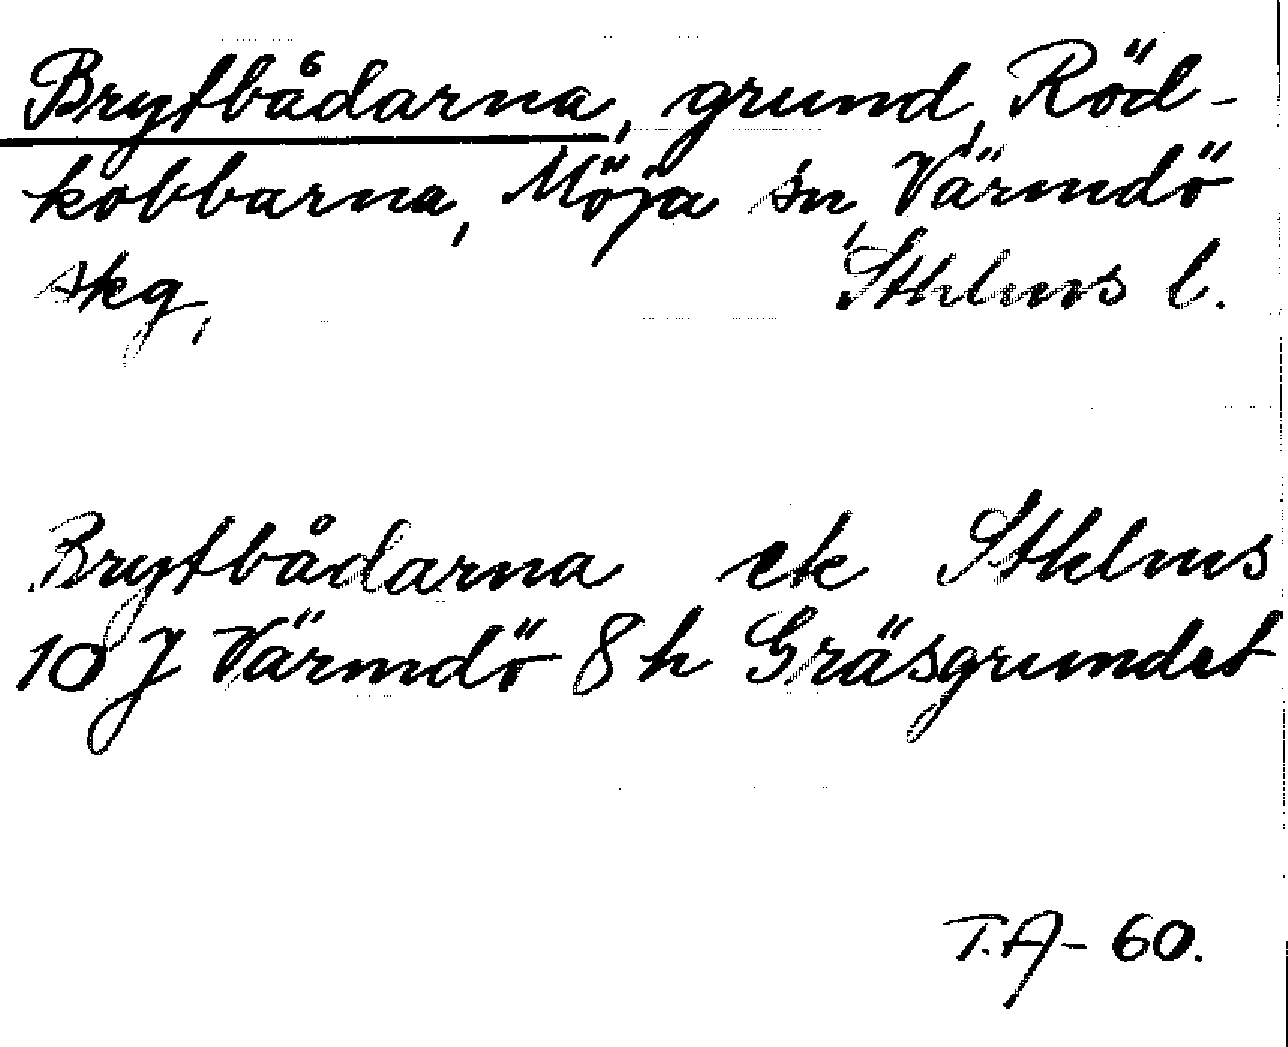 Brytbådarna, grund, Röd-
kobbarna, Möja sn, Värmdö
skg, Sthlms l.
Brytbådarna ek Sthlms
10 J Värmdö 8 h Gräsgrundet
T.A-60.